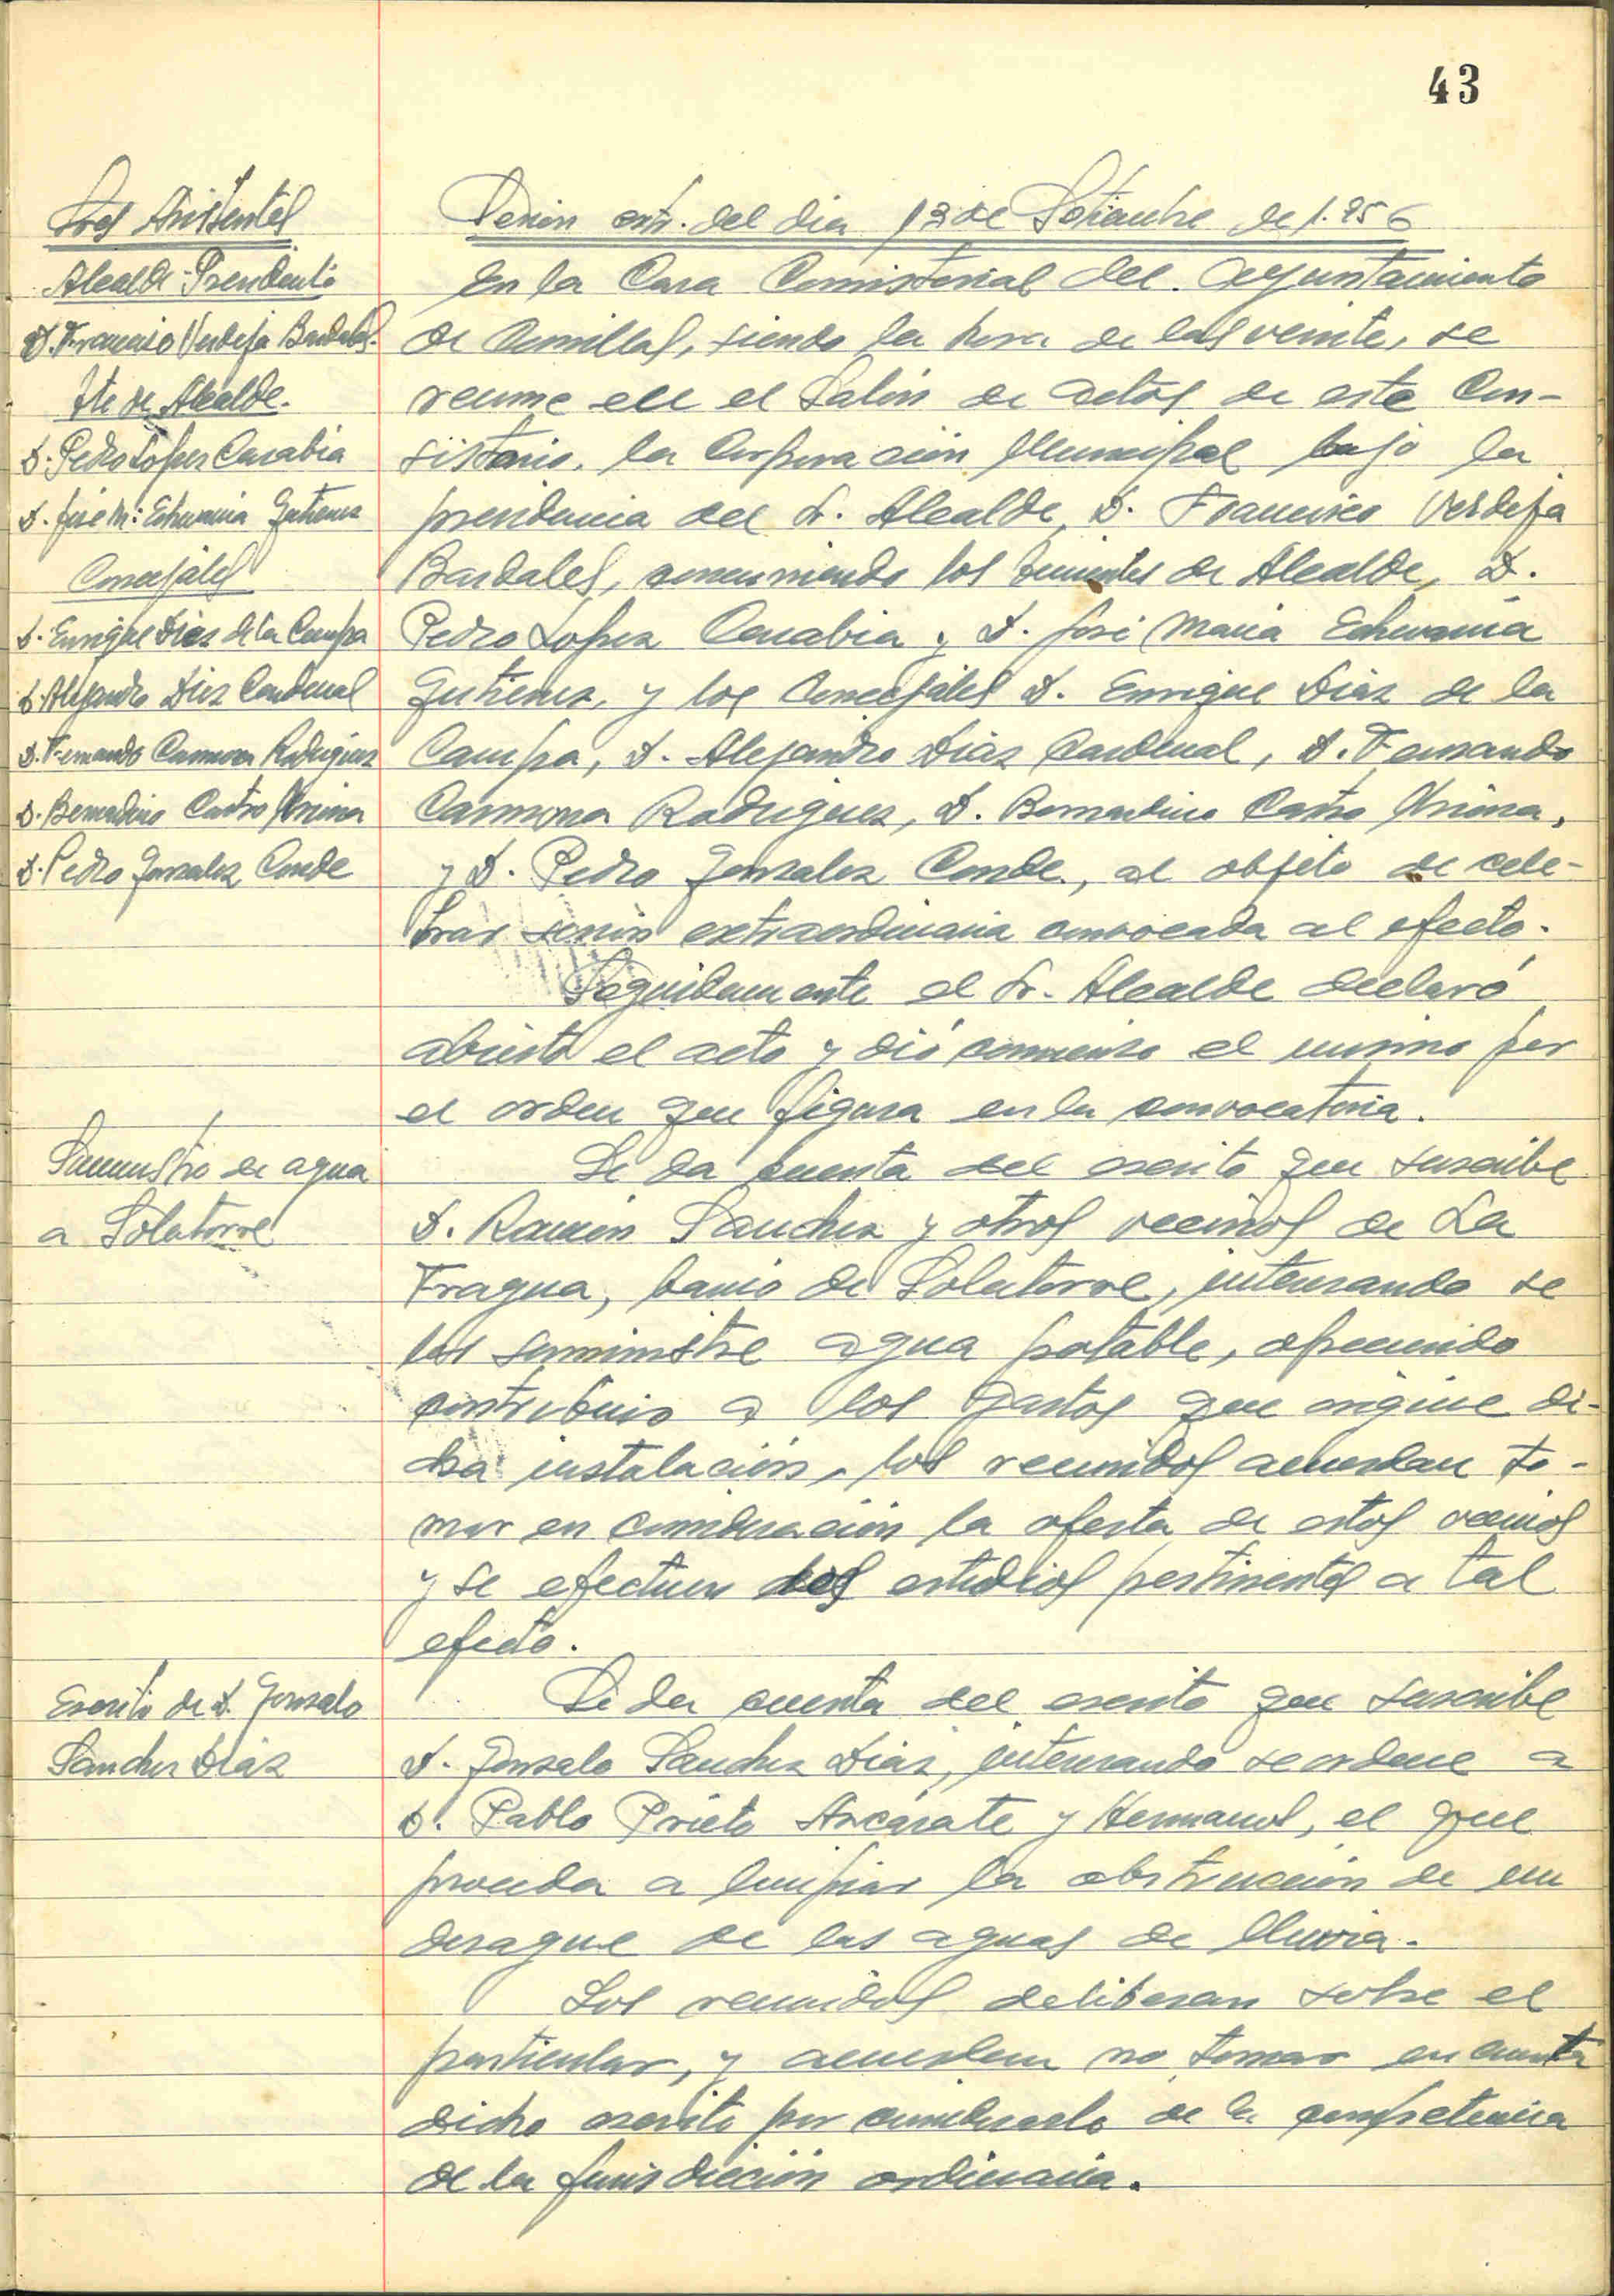 43
Sres Asistentes
Alcalde-Presidente
D. Francisco Verdeja Bardales.
Tte de Alcalde.
D. Pedro Lopez Carabia
D. José Mª Echevarria Gutierrez
Concejales
D. Enrique Diaz de la Campa
D. Alejandro Diez Cardenal
D. Fernando Carmona Rodriguez
D. Bernardino Castro
D. Pedro Gonzalez Conde
Suministro de agua
a Solatorre
Escrito de D. Gonzalo
Sanchez Diaz
Sesion extr. del dia 13 de Setiembre de 1.956
En la Casa Consistorial del Ayuntamiento
de Comillas, siendo la hora de las veinte, se
reune en el Salón de actos de este Con-
sistorio, la Corporación Municipal bajo la
presidencia del Sr. Alcalde, D. Francisco Verdeja
Bardales, concurriendo los tenientes de Alcalde, D.
Pedro Lopez Carabia y D. José Maria Echevarria
Gutierrez, y los Concejales D. Enrique Diaz de la
Campa, D. Alejandro Diaz Cardenal, D. Fernando
Carmona Rodriguez, D. Bernardino Castro
y D. Pedro Gonzalez Conde, al objeto de cele-
brar sesión extraordinaria convocada al efecto.
Seguidamente el Sr. Alcalde declaró
abierto el acto y dió comienzo el mismo por
el orden que figura en la convocatoria.
Se da cuenta del escrito que suscribe
D. Ramón Sanchez y otros vecinos de La
Fragua, barrio de Solatorre, interesando se
les suministre agua potable, ofreciendo
contribuir a los gastos que origine di-
cha instalación, los reunidos acuerdan to-
mar en consideración la oferta de estos vecinos
y se efectuen los estudios pertinentes a tal
efecto.
Se da cuenta del escrito que suscribe
D. Gonzalo Sanchez Diaz, interesando se ordene a
D. Pablo Prieto Azcárate y Hermanos, el que
proceda a limpiar la obstrucción de un
desague de las aguas de lluvia.
Los reunidos deliberan sobre el
particular, y acuerdan no tomar en cuenta
dicho escrito por considerarlo de la competencia
de la jurisdicción ordinaria.